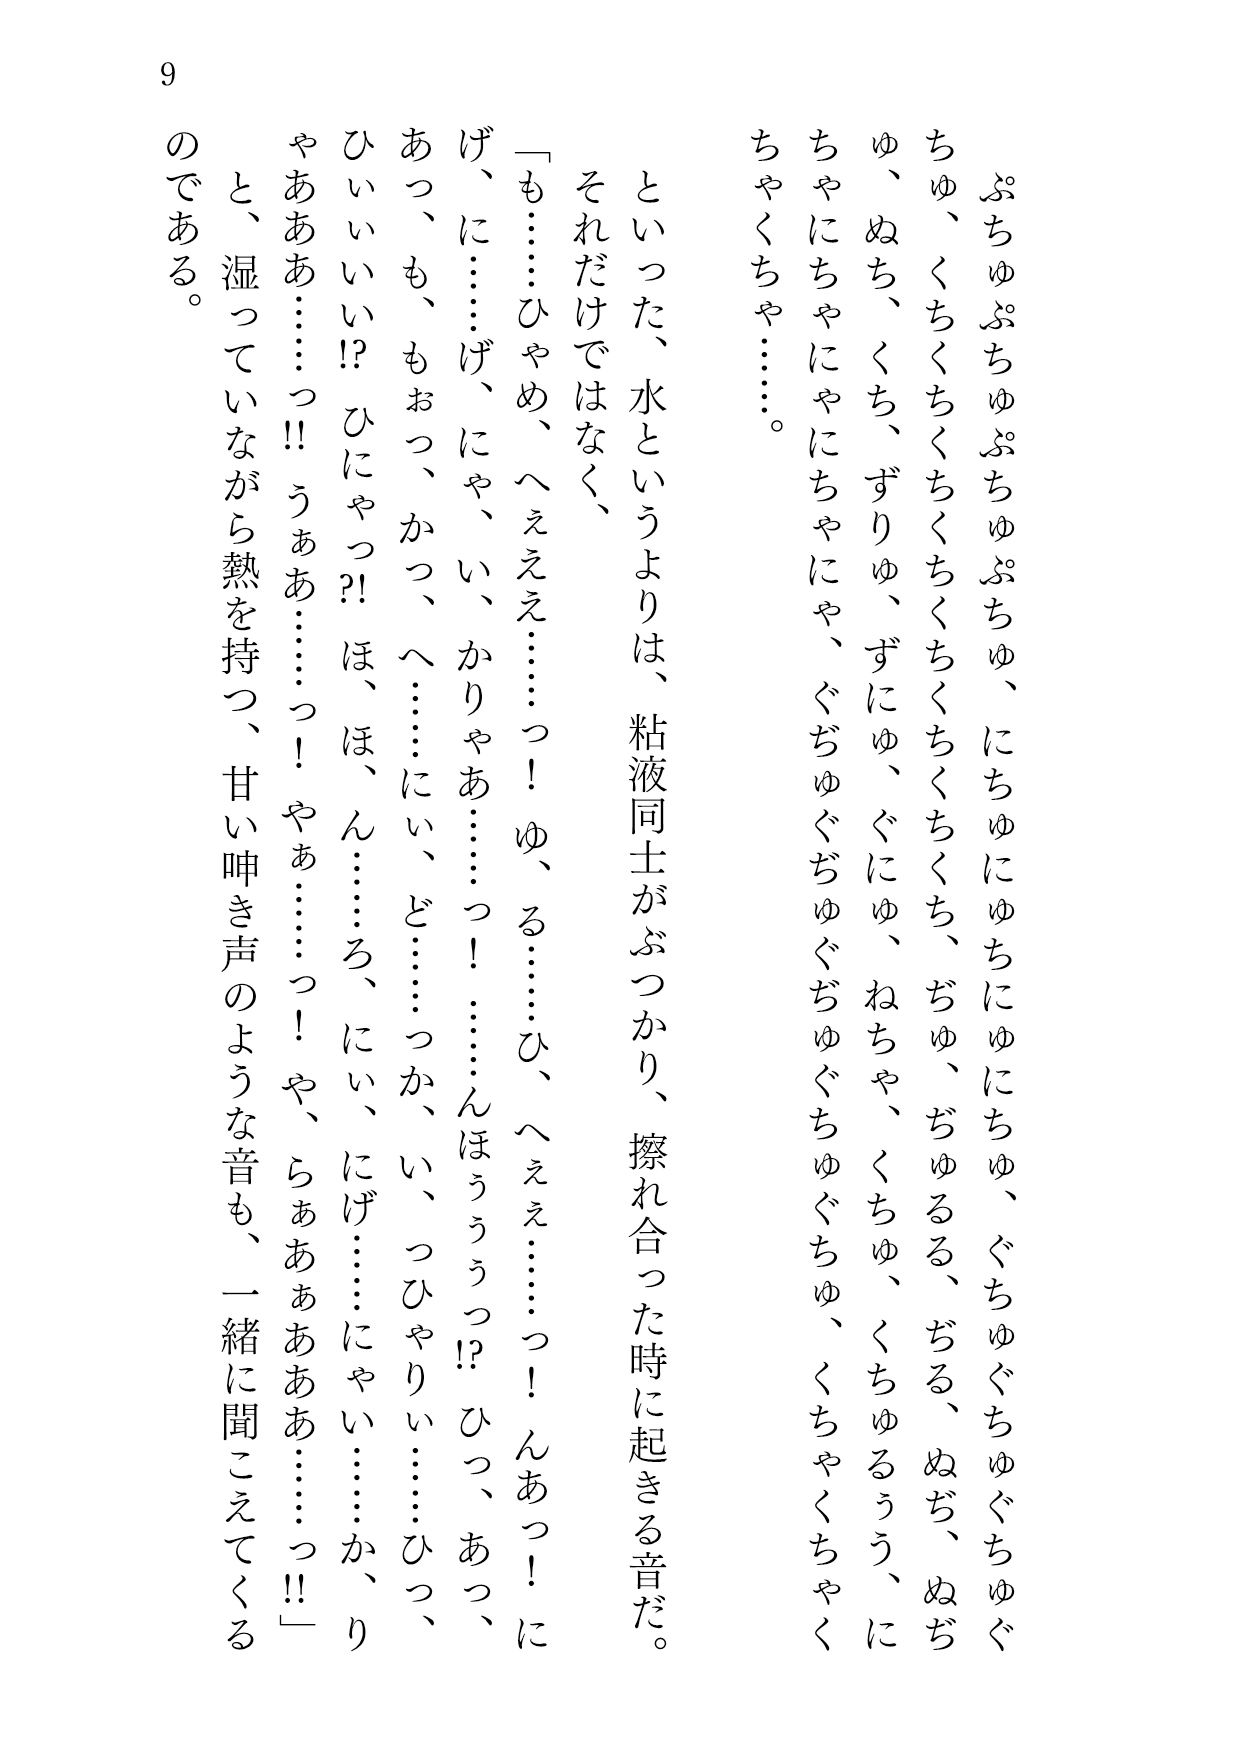 9
ぷちゅぷちゅぷちゅぷちゅ、にちゅにゅちにゅにちゅ、ぐちゅぐちゅぐちゅぐ
ちゅ、くちくちくちくちくちくちくちくちくち、ぢゅ、ぢゅるる、ぢる、ぬぢ、ぬぢ
ゅ、ぬち、くち、ずりゅ、ずにゅ、ぐにゅ、ねちゃ、くちゅ、くちゅるぅう、に
ちゃにちゃにゃにちゃにゃ、ぐぢゅぐぢゅぐぢゅぐちゅぐちゅ、くちゃくちゃく
ちゃくちゃ……。
といった、水というよりは、粘液同士がぶつかり、擦れ合った時に起きる音だ。
それだけではなく、
「も……ひゃめ、へぇええ……っ！ ゆ、る……ひ、へぇぇ……っ！ んあっ！ に
げ、に……げ、にゃ、い、かりゃあ……っ！ ……んほぅぅぅっ!? ひっ、あっ、
あっ、も、もぉっ、かっ、へ……にぃ、ど……っか、い、っひゃりぃ……ひっ、
ひぃぃいい!? ひにゃっ?! ほ、ほ、ん……ろ、にぃ、にげ……にゃい……か、り
ゃあああ……っ!! うぁあ……っ！ やぁ……っ！ や、らぁあぁあああ……っ!!」
と、湿っていながら熱を持つ、甘い呻き声のような音も、一緒に聞こえてくる
のである。